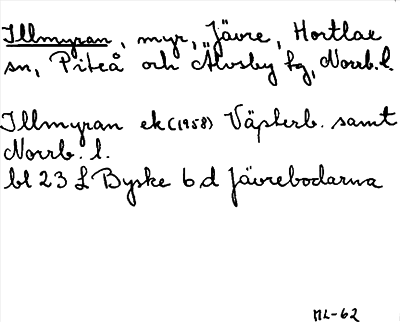 Illmyran, myr, Jävre, Hortlax
sn, Piteå och Älvsby tg, Norrb.l.
Illmyran ek(1958) Västerb. samt
Norrb. l.
bl 23 L Byske b d Jävrebodarna
ML-62